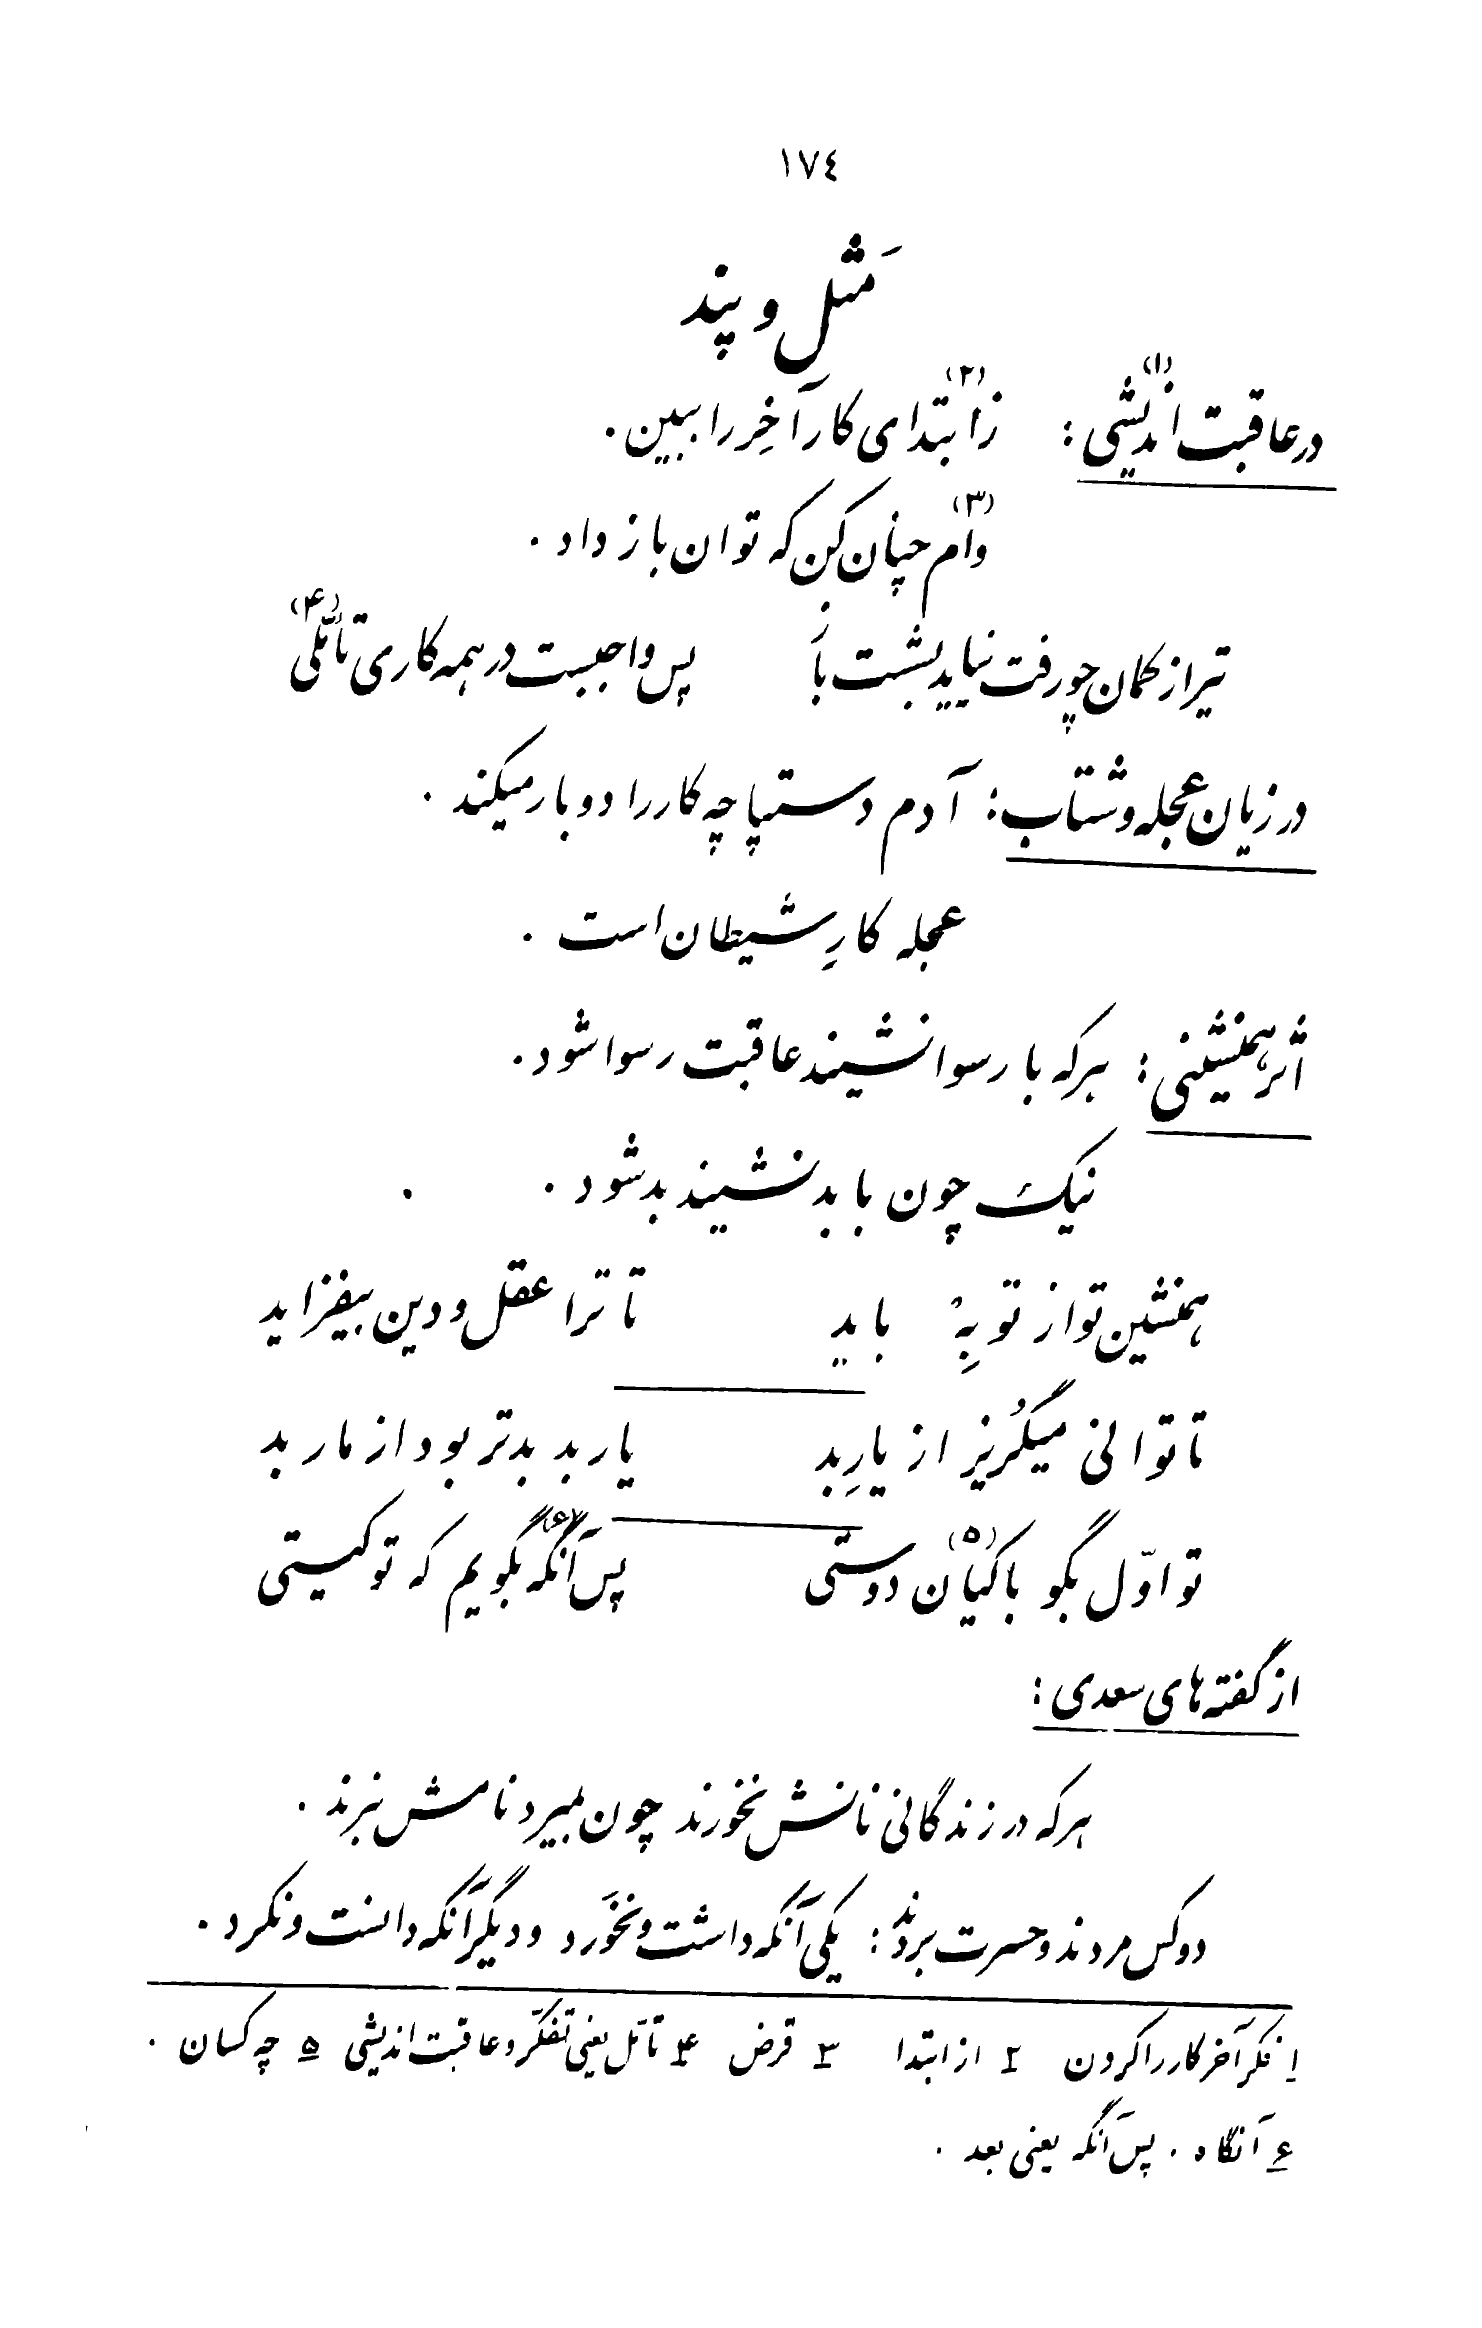 ١٧٤
مَثل و پند
در عاقبت اندیشی(۱) : زابتدای(۲) کار آخِر را ببین .
وام(۳) چنان کن که توان باز داد .
تیر از کمان چو رفت نیاید بشست بازَ پس واجبست در همه کاری تأمّلی(۴)
در زیان عجله و شتاب : آدم دستپاچه کار را دو بار میکند .
عجله کارِ شیطان است .
اثر همنشینی : هر که با رسوا نشیند عاقبت رسوا شود .
نیک چون با بد نشیند بد شود .
همنشین تو از تو بِهْ باید تا ترا عقل و دین بیفزاید
تا توانی میگُریز از یارِ بد یار بد بدتر بود از مار بد
تو اوّل بگو با کیان(۵) دوستی پس آنگه(۶) بگویم که تو کیستی
از گفته های سعدی :
هر که در زندگانی نانش نخورند چون بمیرد نامش نبرند .
دو کس مردند و حسرت بردند : یکی آنکه داشت و نخَورد و دیگر آنکه دانست و نکرد .
۱ فکر آخر کار را کردن ۲ از ابتدا ۳ قرض ۴ تأمّل یعنی تفکّر و عاقبت اندیشی ۵ چه کسان .
۶ آنگاه . پس آنگه یعنی بعد .